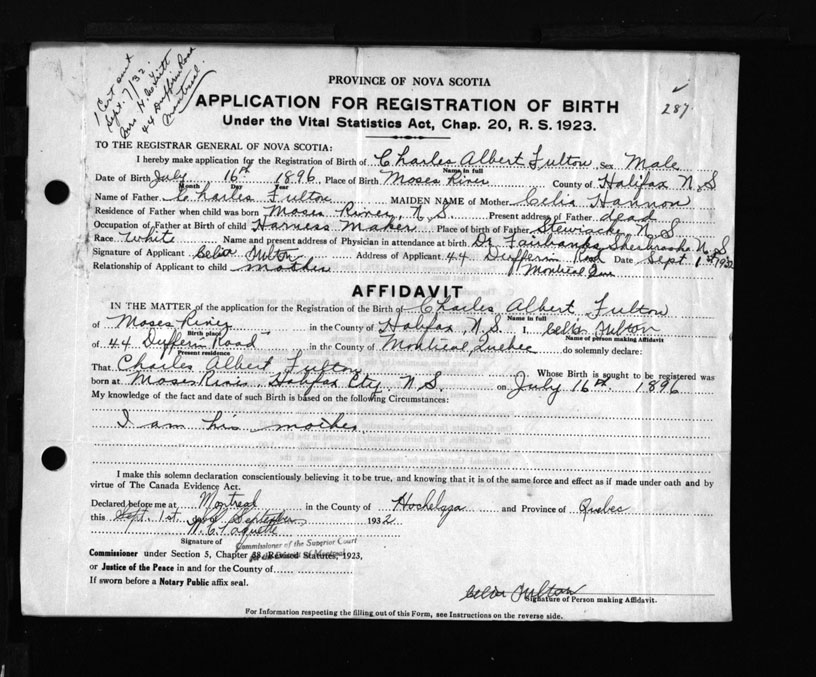 1 Cert sent
Sept. 7/32.
Mrs H.
44 Dufferin Road
Montreal
287
PROVINCE OF NOVA SCOTIA
APPLICATION FOR REGISTRATION OF BIRTH
Under the Vital Statistics Act, Chap. 20, R. S. 1923.
TO THE REGISTRAR GENERAL OF NOVA SCOTIA:
I hereby make application for the Registration of Birth of Charles Albert Fulton Sex Male
Name in full
Date of Birth July 16th 1896 Place of Birth Moses River County of Halifax N.S
Month Day Year
Name of Father Charles Fulton MAIDEN NAME of Mother Celia Hannon
Residence of Father when child was born Moses River, N.S. Present address of Father dead
Occupation of Father at Birth of child Harness Maker Place of birth of Father Stewiacke, N.S
Race White Name and present address of Physician in attendance at birth Dr. Fairbanks Sherbrooke N.S
Signature of Applicant Celia Fulton Address of Applicant 44 Dufferin Road Date Sept 1st 1932
Relationship of Applicant to child mother Montreal Que
AFFIDAVIT
IN THE MATTER of the application for the Registration of the Birth of Charles Albert Fulton
Name in full
of Moses River in the County of Halifax, N.S. I, Celia Fulton
Birth place Name of person making Affidavit
of 44 Dufferin Road in the County of Montreal, Quebec do solemnly declare:
Present residence
That Charles Albert Fulton Whose Birth is sought to be registered was
born at Moses River, Halifax Cty, N.S. on July 16th 1896
My knowledge of the fact and date of such Birth is based on the following Circumstances:
I am his mother
I make this solemn declaration conscientiously believing it to be true, and knowing that it is of the same force and effect as if made under oath and by
virtue of The Canada Evidence Act.
Declared before me at Montreal in the County of Hochelaga and Province of Quebec
this Sept. 1st September 1932
Signature of Commissioner of the Superior Court
Commissioner under Section 5, Chapter 38, Revised Statutes, 1923,
or Justice of the Peace in and for the County of
If sworn before a Notary Public affix seal.
Celia Fulton
Signature of Person making Affidavit.
For Information respecting the filling out of this Form, see Instructions on the reverse side.